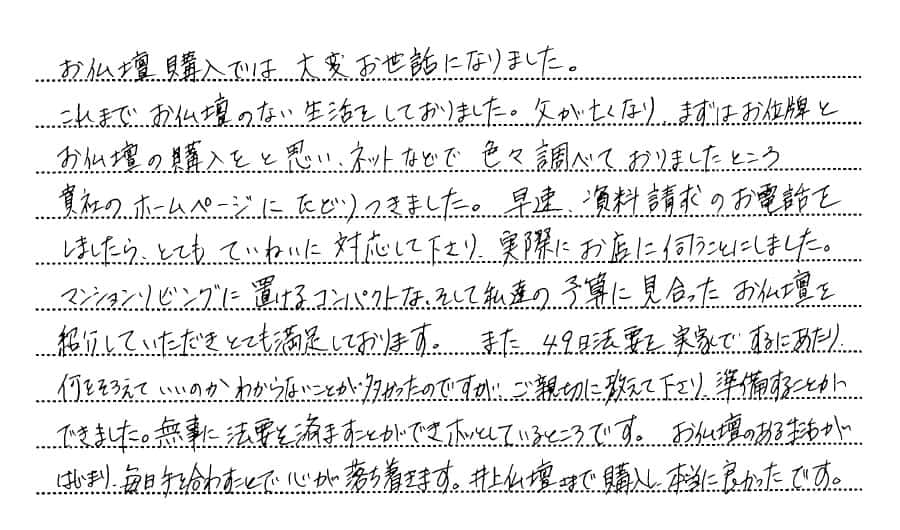 お仏壇購入では 大変お世話になりました。
これまで お仏壇のない生活をしておりました。父が亡くなり、まずはお位牌と
お仏壇の購入をと思い、ネットなどで 色々調べて おりましたところ
貴社の ホームページに たどりつきました。 早速、資料請求のお電話を
しましたら、とても ていねいに 対応して下さり、実際に お店に伺うことにしました。
マンションリビングに 置けるコンパクトな、そして私達の 予算に 見合った お仏壇を
紹介していただきとても満足しております。 また 49日法要を 実家で するにあたり、
何をそろえて いいのか わからないことが多かったのですが、ご親切に教えて下さり、準備することが
できました。無事に 法要を済ますことができホッとしているところです。 お仏壇のある生活が
はじまり、毎日手を合わすことで心が 落ち着きます。井上仏壇さまで 購入し、本当に良かったです。